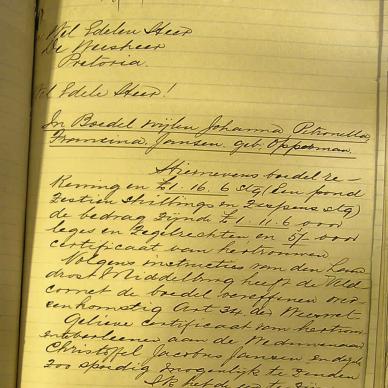 Wel Edelen Heer
De Weesheer
Pretoria.
Wel Edele Heer!
In Boedel wijlen Johanna Petronella
Francina Jansen geb. Opperman.
Hiernevens boedel re-
kening en £1.16.6 stg (Een pond
Zestien Shillings en Zespens stg)
de bedrag zijnde £1.11.6 voor
leges en Zegelrechten en 5/- voor
certificaat van hertrouwen
Volgens instructies van den Lan
drost Middelburg heeft de Veld
cornet de boedel vereffenen over-
eenkomstig Art 34 der Weeswet
Gelieve certificaat van hertrouw
en te verleenen aan de Weduwenaar
Christoffel Jacobus Jansen en die
zoo spoedig mogelijk te zenden
Ik heb de eer te zijn